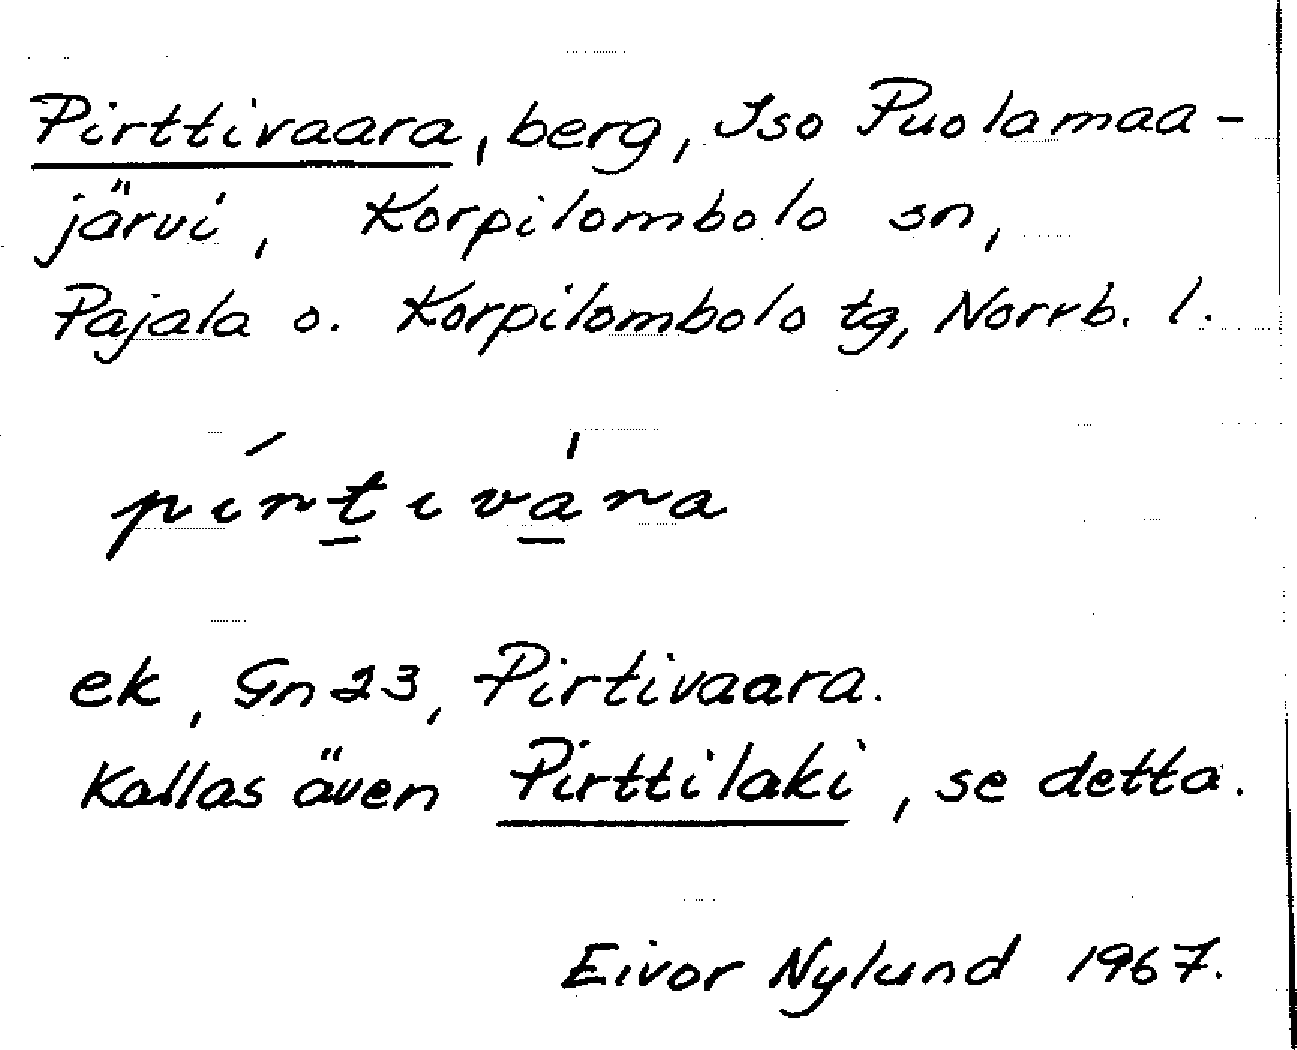 Pirttivaara, berg, Iso Puolamaa-
järvi, Korpilombolo sn,
Pajala o. Korpilombolo tg, Norrb. l.
pírt̲iva̲̍ra
ek, Gn 23, Pirtivaara.
Kallas även Pirttilaki, se detta.
Eivor Nylund 1967.